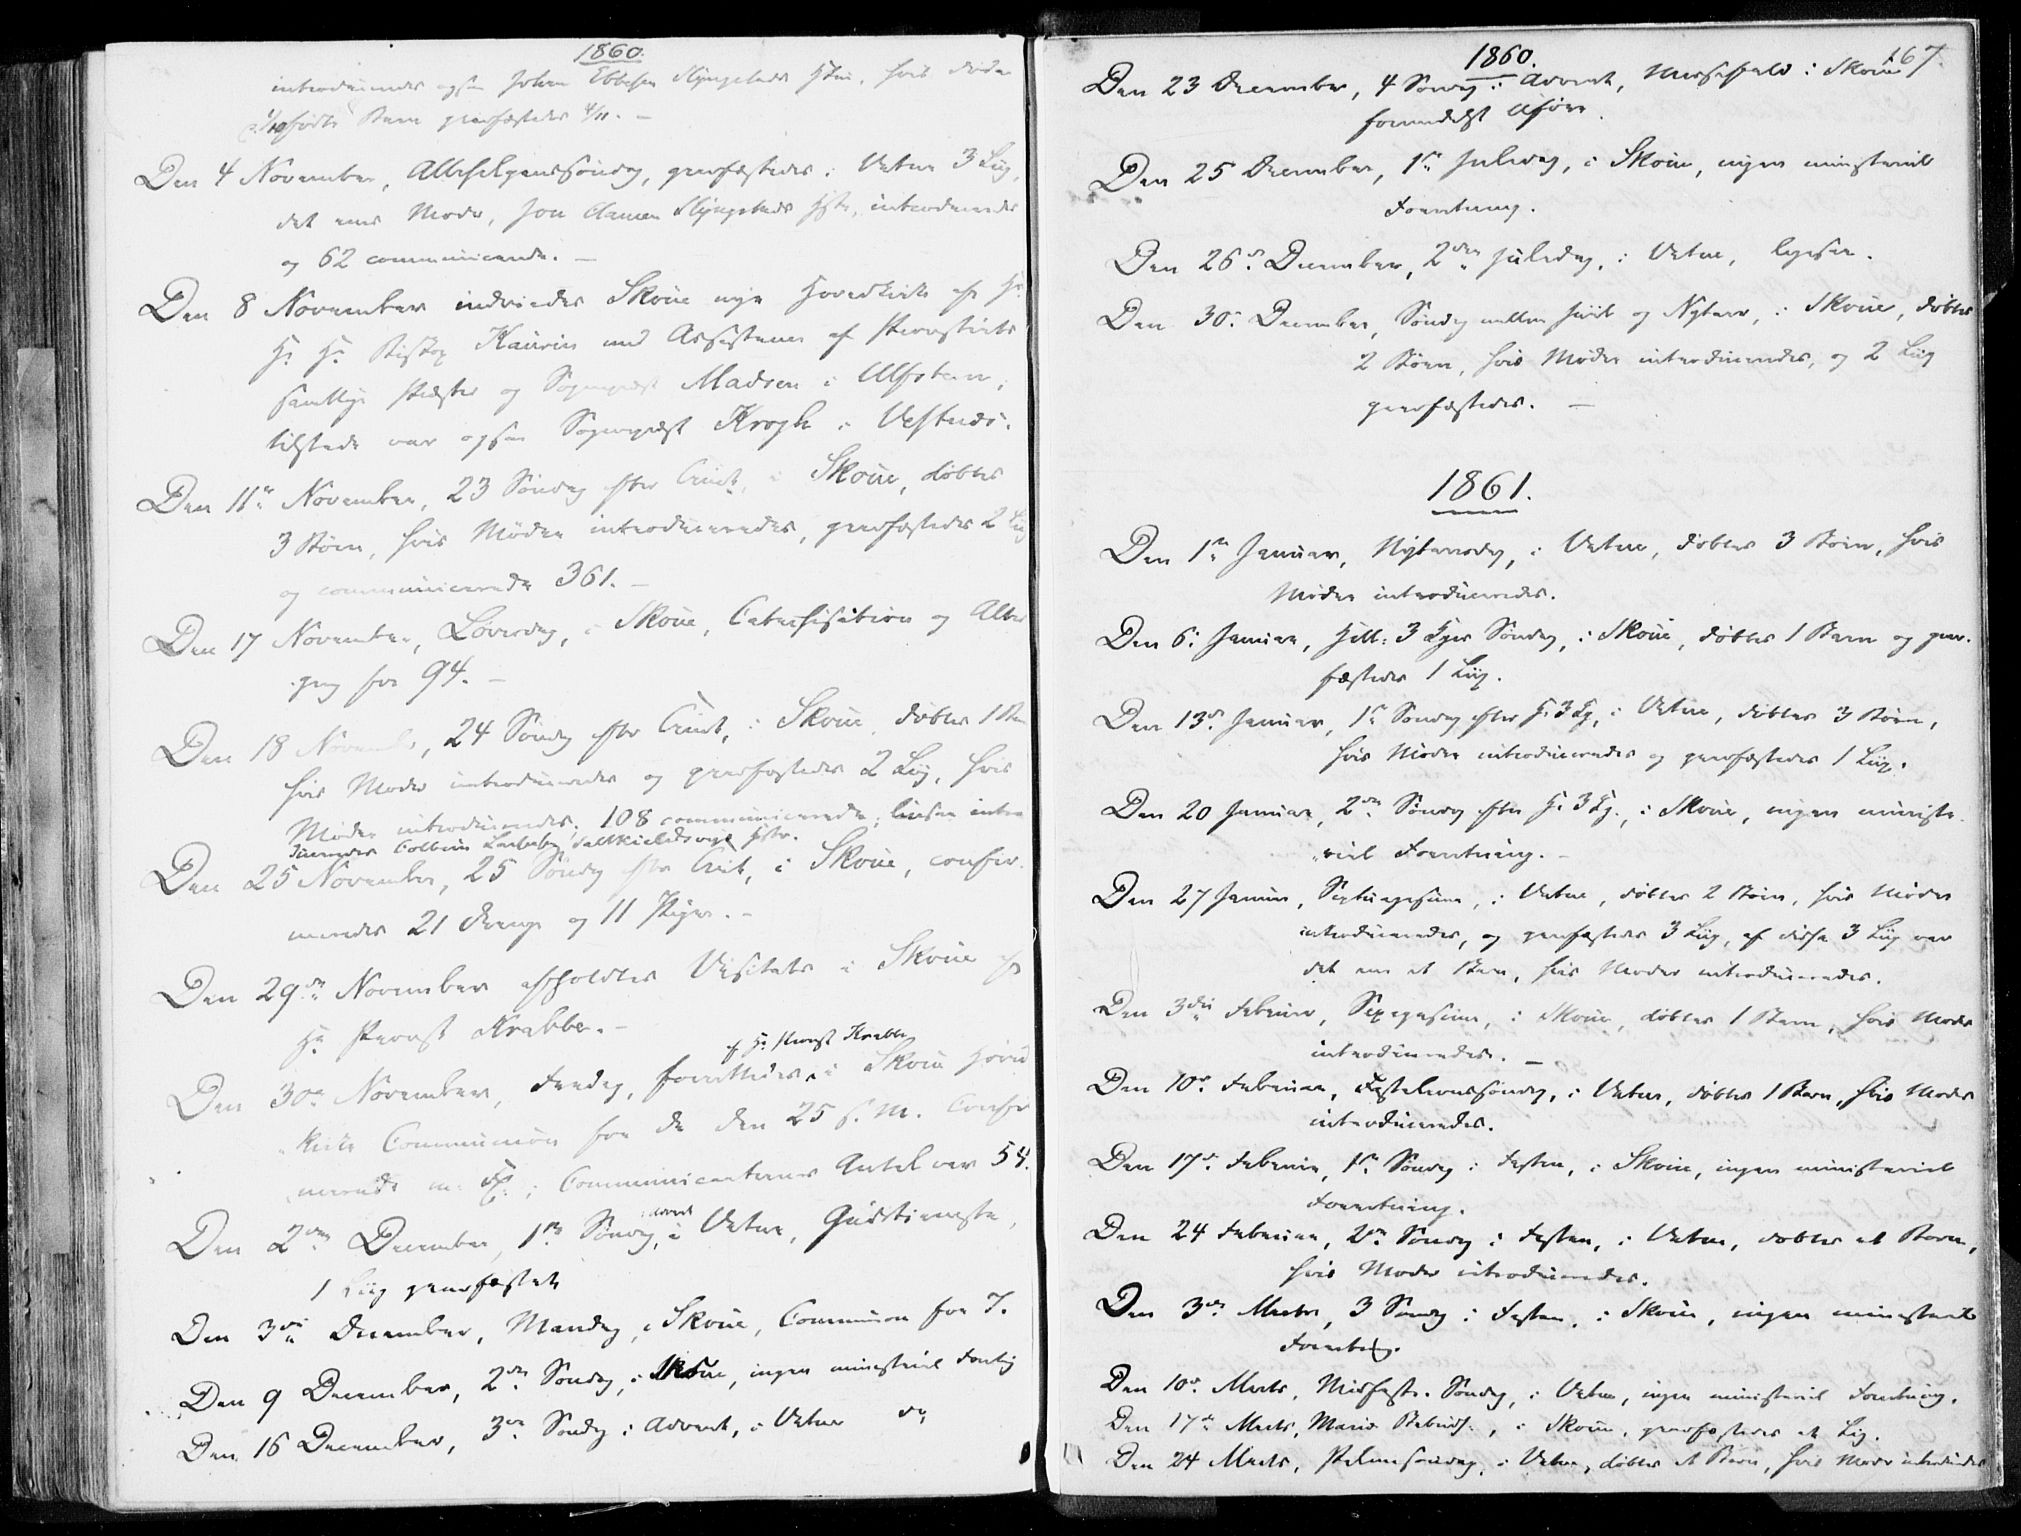 1860.
introduceredes ogsaa Johan Ebbesen Slyngstads Hstr., hvis døde
fødte Barn jordfæstedes 4/11. –
Den 4 November, Allehelgenssøndag, jordfæstedes i Vatne 3 Liig,
det enes Moder, Jon Aamen Slyngstads Hstr., introduceredes
og 62 communicerede. –
Den 8 November indviedes Skoue nye Hovedkirke af Hr.
Hr. Biskop Kaurin med Assistance af Provstiets
samtlige Præster og Sognepræst Madsen i Ulfsteen,
tilstede var ogsaa Sognepræst Krogh i Vestnæs.
Den 11te November, 23 Søndag efter Trinit., i Skoue, døbtes
3 Børn, hvis Mødre introduceredes, jordfæstedes 2 Liig
og communicerede 361. –
Den 17 November, Løverdag, i Skoue, Catechisation og Alter
gang for 94. –
Den 18 November, 24 Søndag efter Trinit., i Skoue, døbtes 1 Barn
hvis Moder introduceredes og jordfæstedes 2 Liig, hvis
Mødre introduceredes, 108 communicerede; ligesaa intro
duceredes Colbein Hstr.
Den 25 November, 25 Søndag efter Trinit., i Skoue, confir
meredes 21 Drenge og 11 Piger. –
Den 29de November afholdtes Visitats i Skoue af
Hr. Provst Krabbe. –
af Hr. Provst Krabbe
Den 30te November, Fredag, forrettedes i Skoue Hoved
kirke Communion for de den 25 s. M. Confir
merede m. Fl.; Communicanternes Antal var 54.
Den 2den December, 1ste Søndag i Advent, i Vatne, Gudstieneste,
1 Liig jordfæstet
Den 3die December, Mandag, i Skoue, Communion for 7.
Den 9 December, 2den Søndag, i Skoue, ingen ministeriel Forretng
Den 16 December, 3die Søndag i Advent, i Vatne do
1860.
167.
Den 23 December, 4 Søndag i Advent, Messefald i Skoue
formedelst Uføre.
Den 25 December, 1ste Juledag, i Skoue, ingen ministeriel
Forretning.
Den 26de December, 2den Juledag, i Vatne, ligesaa.
Den 30te December, Søndag mellem Juul og Nytaar, i Skoue, døbtes
2 Børn, hvis Mødre introduceredes, og 2 Liig
jordfæstedes. –
1861.
Den 1ste Januar, Nytaarsdag, i Vatne, døbtes 3 Børn, hvis
Mødre introduceredes.
Den 6te Januar, Hell: 3 Kgers Søndag, i Skoue, døbtes 1 Barn og jord-
fæstedes 1 Liig.
Den 13de Januar, 1ste Søndag efter H. 3 Kg., i Vatne, døbtes 3 Børn,
hvis Mødre introduceredes og jordfæstedes 1 Liig.
Den 20 Januar, 2den Søndag efter H. 3 Kg., i Skoue, ingen ministe-
riel Forretning. –
Den 27 Januar, Septuagesima, i Vatne, døbtes 2 Børn, hvis Mødre
introduceredes, og jordfæstedes 3 Liig, af disse 3 Liig var
det ene et Barn, hvis Moder introduceredes.
Den 3die Februar, Sexagesima, i Skoue, døbtes 1 Barn, hvis Moder
introduceredes. –
Den 10de Februar, Fastelavnssøndag, i Vatne, døbtes 1 Barn, hvis Moder
introduceredes.
Den 17de Februar, 1ste Søndag i Fasten, i Skoue, ingen ministeriel
Forretning.
Den 24 Februar, 2den Søndag i Fasten, i Vatne, døbtes et Barn,
hvis Moder introduceredes.
Den 3die Marts, 3 Søndag i Fasten, i Skoue, ingen ministeriel
Forretng.
Den 10de Marts, Midfaste Søndag, i Vatne, ingen ministeriel Forretning.
Den 17de Marts, Mariæ Bebud., i Skoue, jordfæstedes et Lig.
Den 24 Marts, Palmesøndag, i Vatne, døbtes et Barn, hvis Moder introduceredes